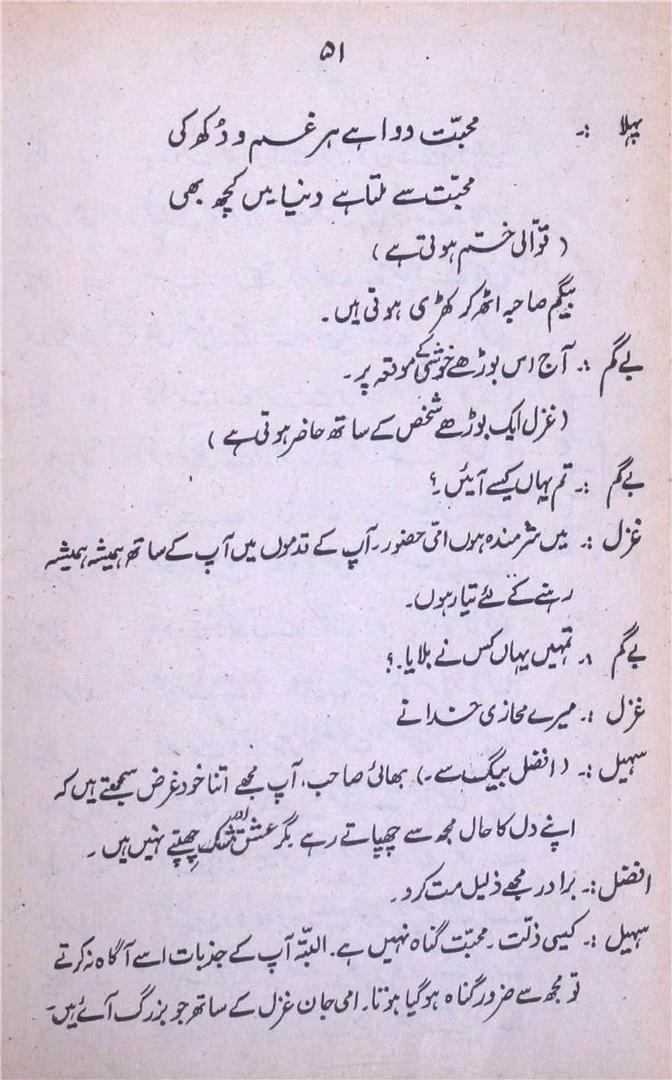 ۵۱
پہلا :۔ محبّت دوا ہے ہر غم و دُکھ کی
محبّت سے ملتا ہے دنیا میں کچھ بھی
( قوّالی ختم ہوتی ہے )
بیگم صاحبہ اٹھ کر کھڑی ہوتی ہیں۔
بےگم :۔ آج اس بوڑھے خوشی کے موقعہ پر۔
( غزل ایک بوڑھے شخص کے ساتھ حاضر ہوتی ہے )
بےگم :۔ تم یہاں کیسے آئیں۔؟
غزل :۔ میں شرمندہ ہوں امّی حضور۔ آپ کے قدموں میں آپ کے ساتھ ہمیشہ ہمیشہ
رہنے کے لئے تیار ہوں۔
بےگم :۔ تمہیں یہاں کس نے بلایا۔؟
غزل :۔ میرے مجازی خدا نے
سہیل :۔ ( افضل بیگ سے۔) بھائی صاحب، آپ مجھے اتنا خود غرض سمجھتے ہیں کہ
اپنے دل کا حال مجھ سے چھپاتے رہے مگر عشق اور مشک چھپتے نہیں ہیں۔
افضل :۔ برادر مجھے ذلیل مت کرو۔
سہیل :۔ کیسی ذلّت۔ محبّت گناہ نہیں ہے۔ البتّہ آپ کے جذبات اسے آگاہ نہ کرتے
تو مجھ سے ضرور گناہ ہوگیا ہوتا۔ امی جان غزل کے ساتھ جو بزرگ آئے ہیں۔